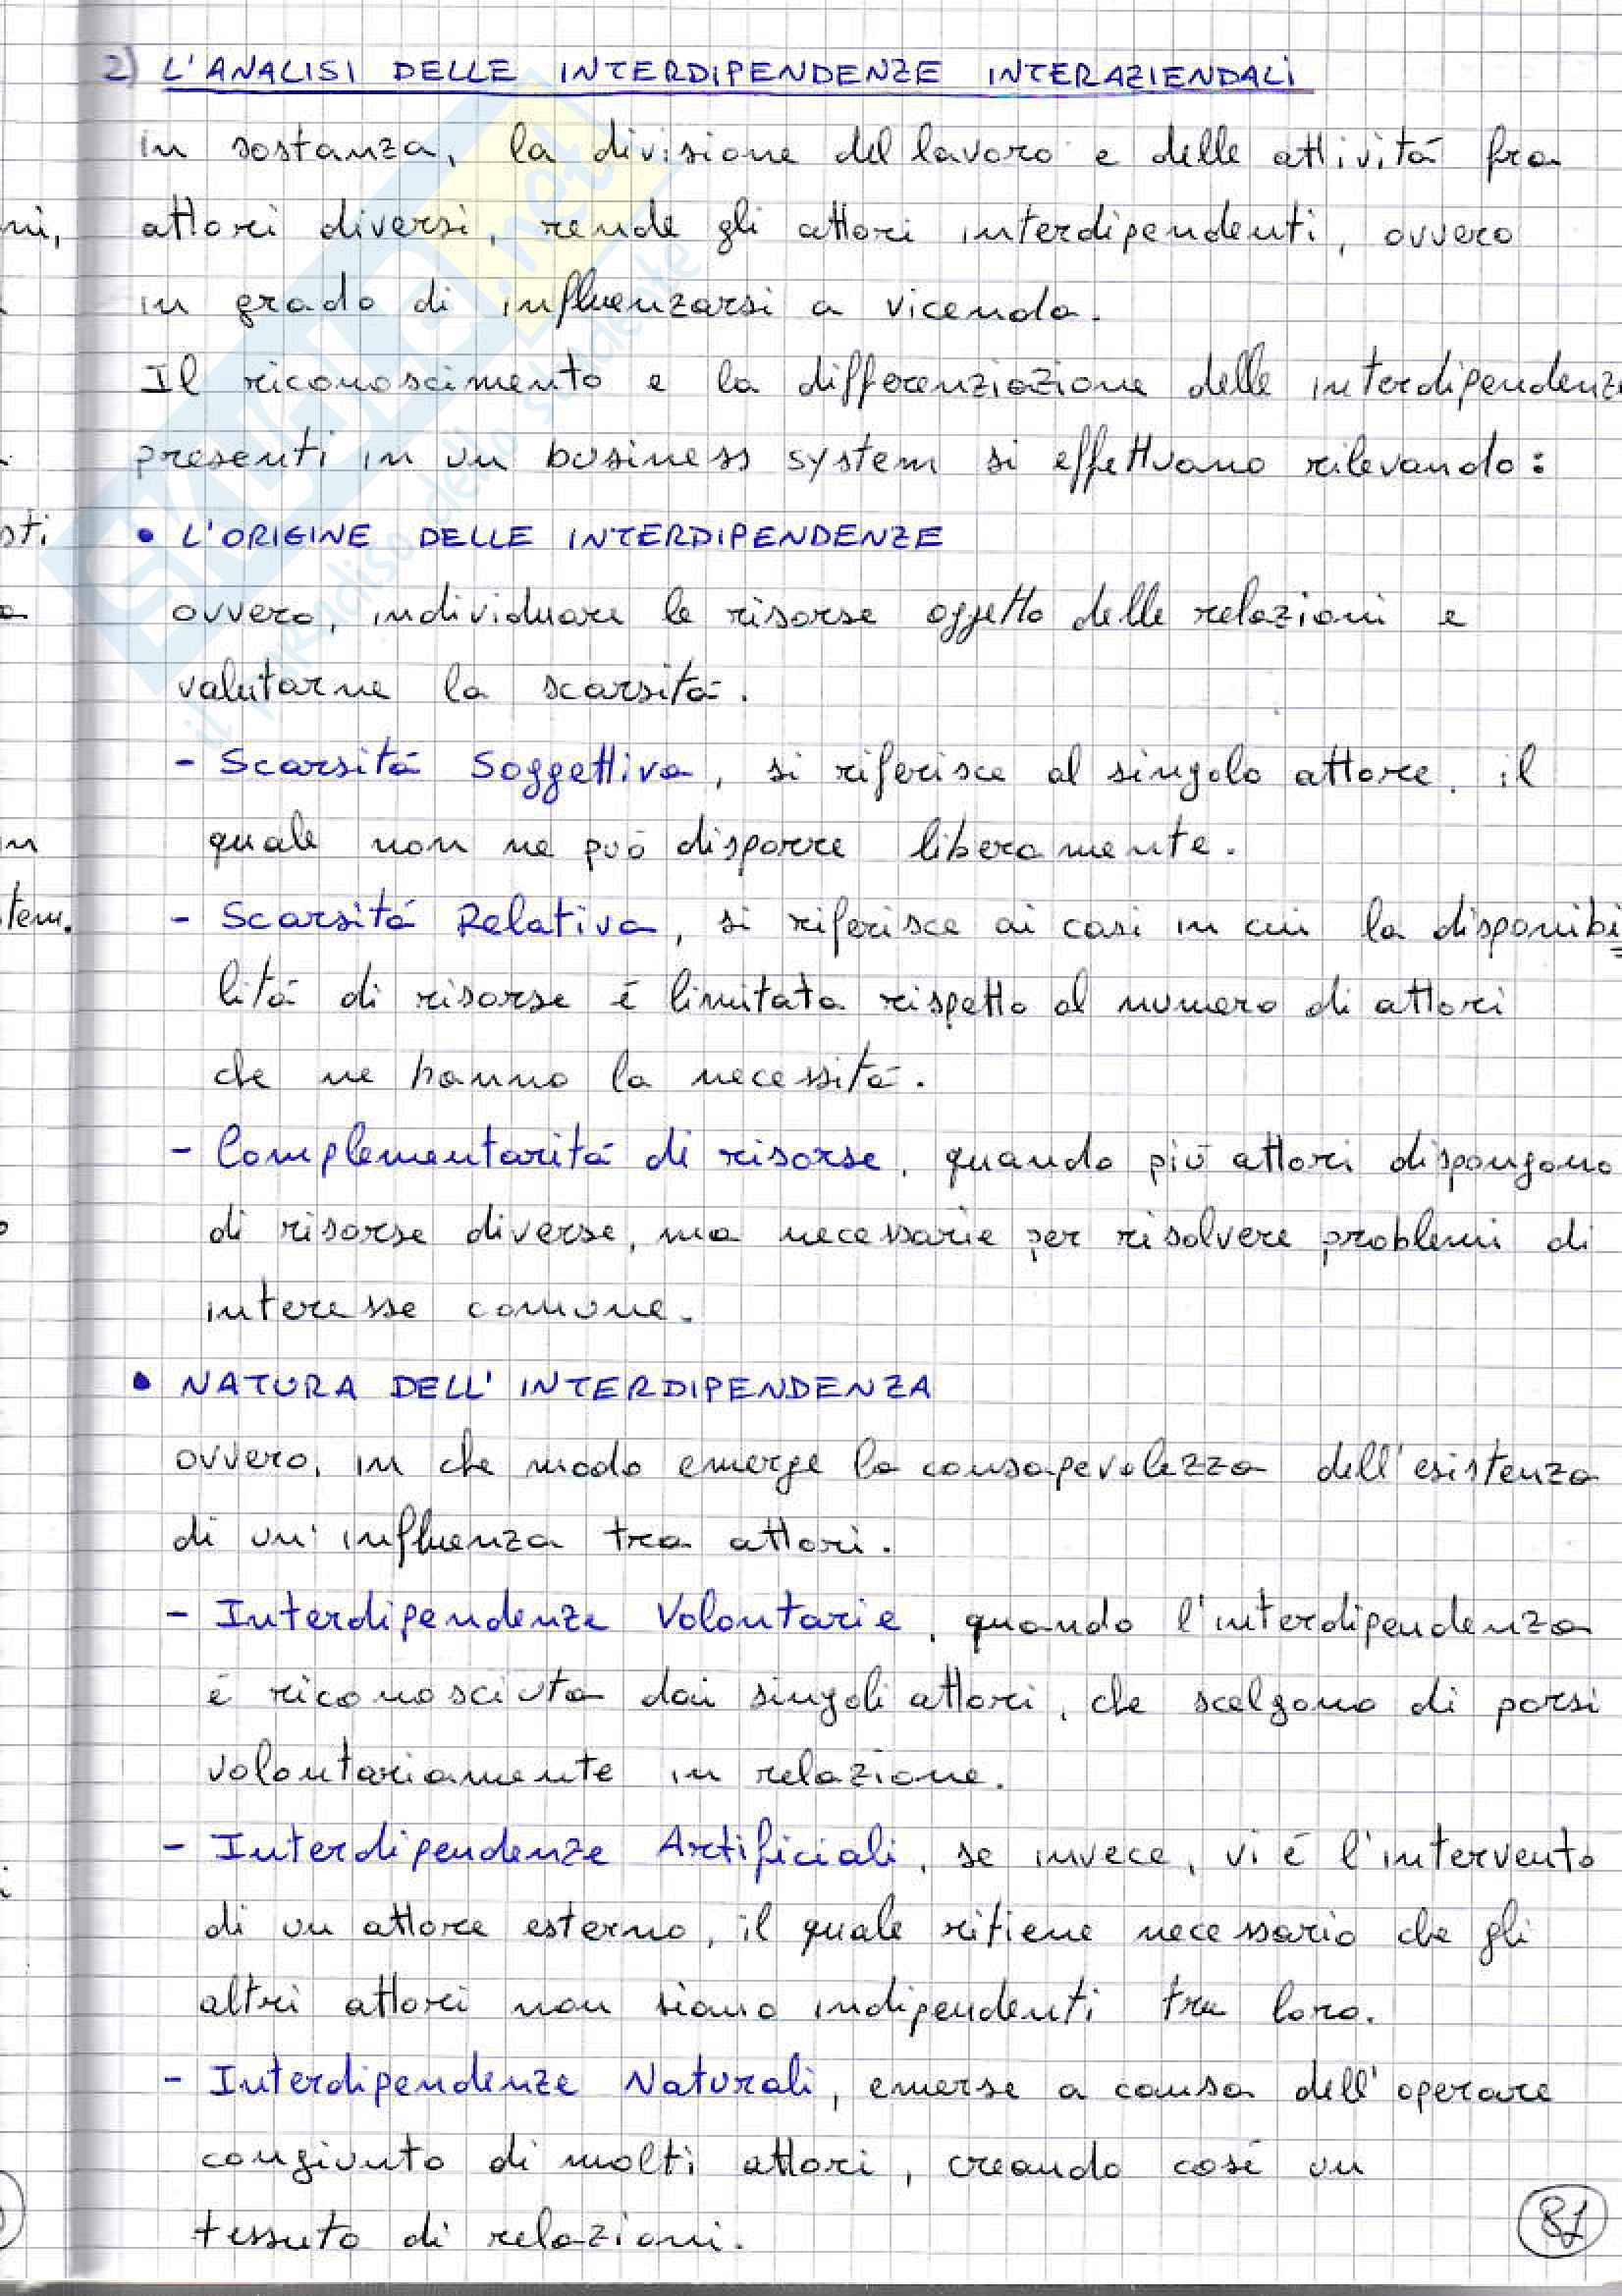 2) L'ANALISI DELLE INTERDIPENDENZE INTERAZIENDALI
in sostanza, la divisione del lavoro e delle attività fra
attori diversi, rende gli attori interdipendenti, ovvero
in grado di influenzarsi a vicenda.
Il riconoscimento e la differenziazione delle interdipendenz
presenti in un business system si effettuano rilevando:
• L'ORIGINE DELLE INTERDIPENDENZE
ovvero, individuare le risorse oggetto delle relazioni e
valutarne la scarsità.
- Scarsità Soggettiva, si riferisce al singolo attore, il
quale non ne può disporre liberamente.
- Scarsità Relativa, si riferisce ai casi in cui la disponibi=
lità di risorse è limitata rispetto al numero di attori
che ne hanno la necessità.
- Complementarità di risorse, quando più attori dispongono
di risorse diverse, ma necessarie per risolvere problemi di
interesse comune.
• NATURA DELL'INTERDIPENDENZA
ovvero, in che modo emerge la consapevolezza dell'esistenza
di un'influenza tra attori.
- Interdipendenze Volontarie, quando l'interdipendenza
è riconosciuta dai singoli attori, che scelgono di porsi
volontariamente in relazione.
- Interdipendenze Artificiali, se invece, vi è l'intervento
di un attore esterno, il quale ritiene necessario che gli
altri attori non siano indipendenti tra loro.
- Interdipendenze Naturali, emerse a causa dell'operare
congiunto di molti attori, creando così un
tessuto di relazioni.
81
SKUOLA.net
il paradiso dello studente